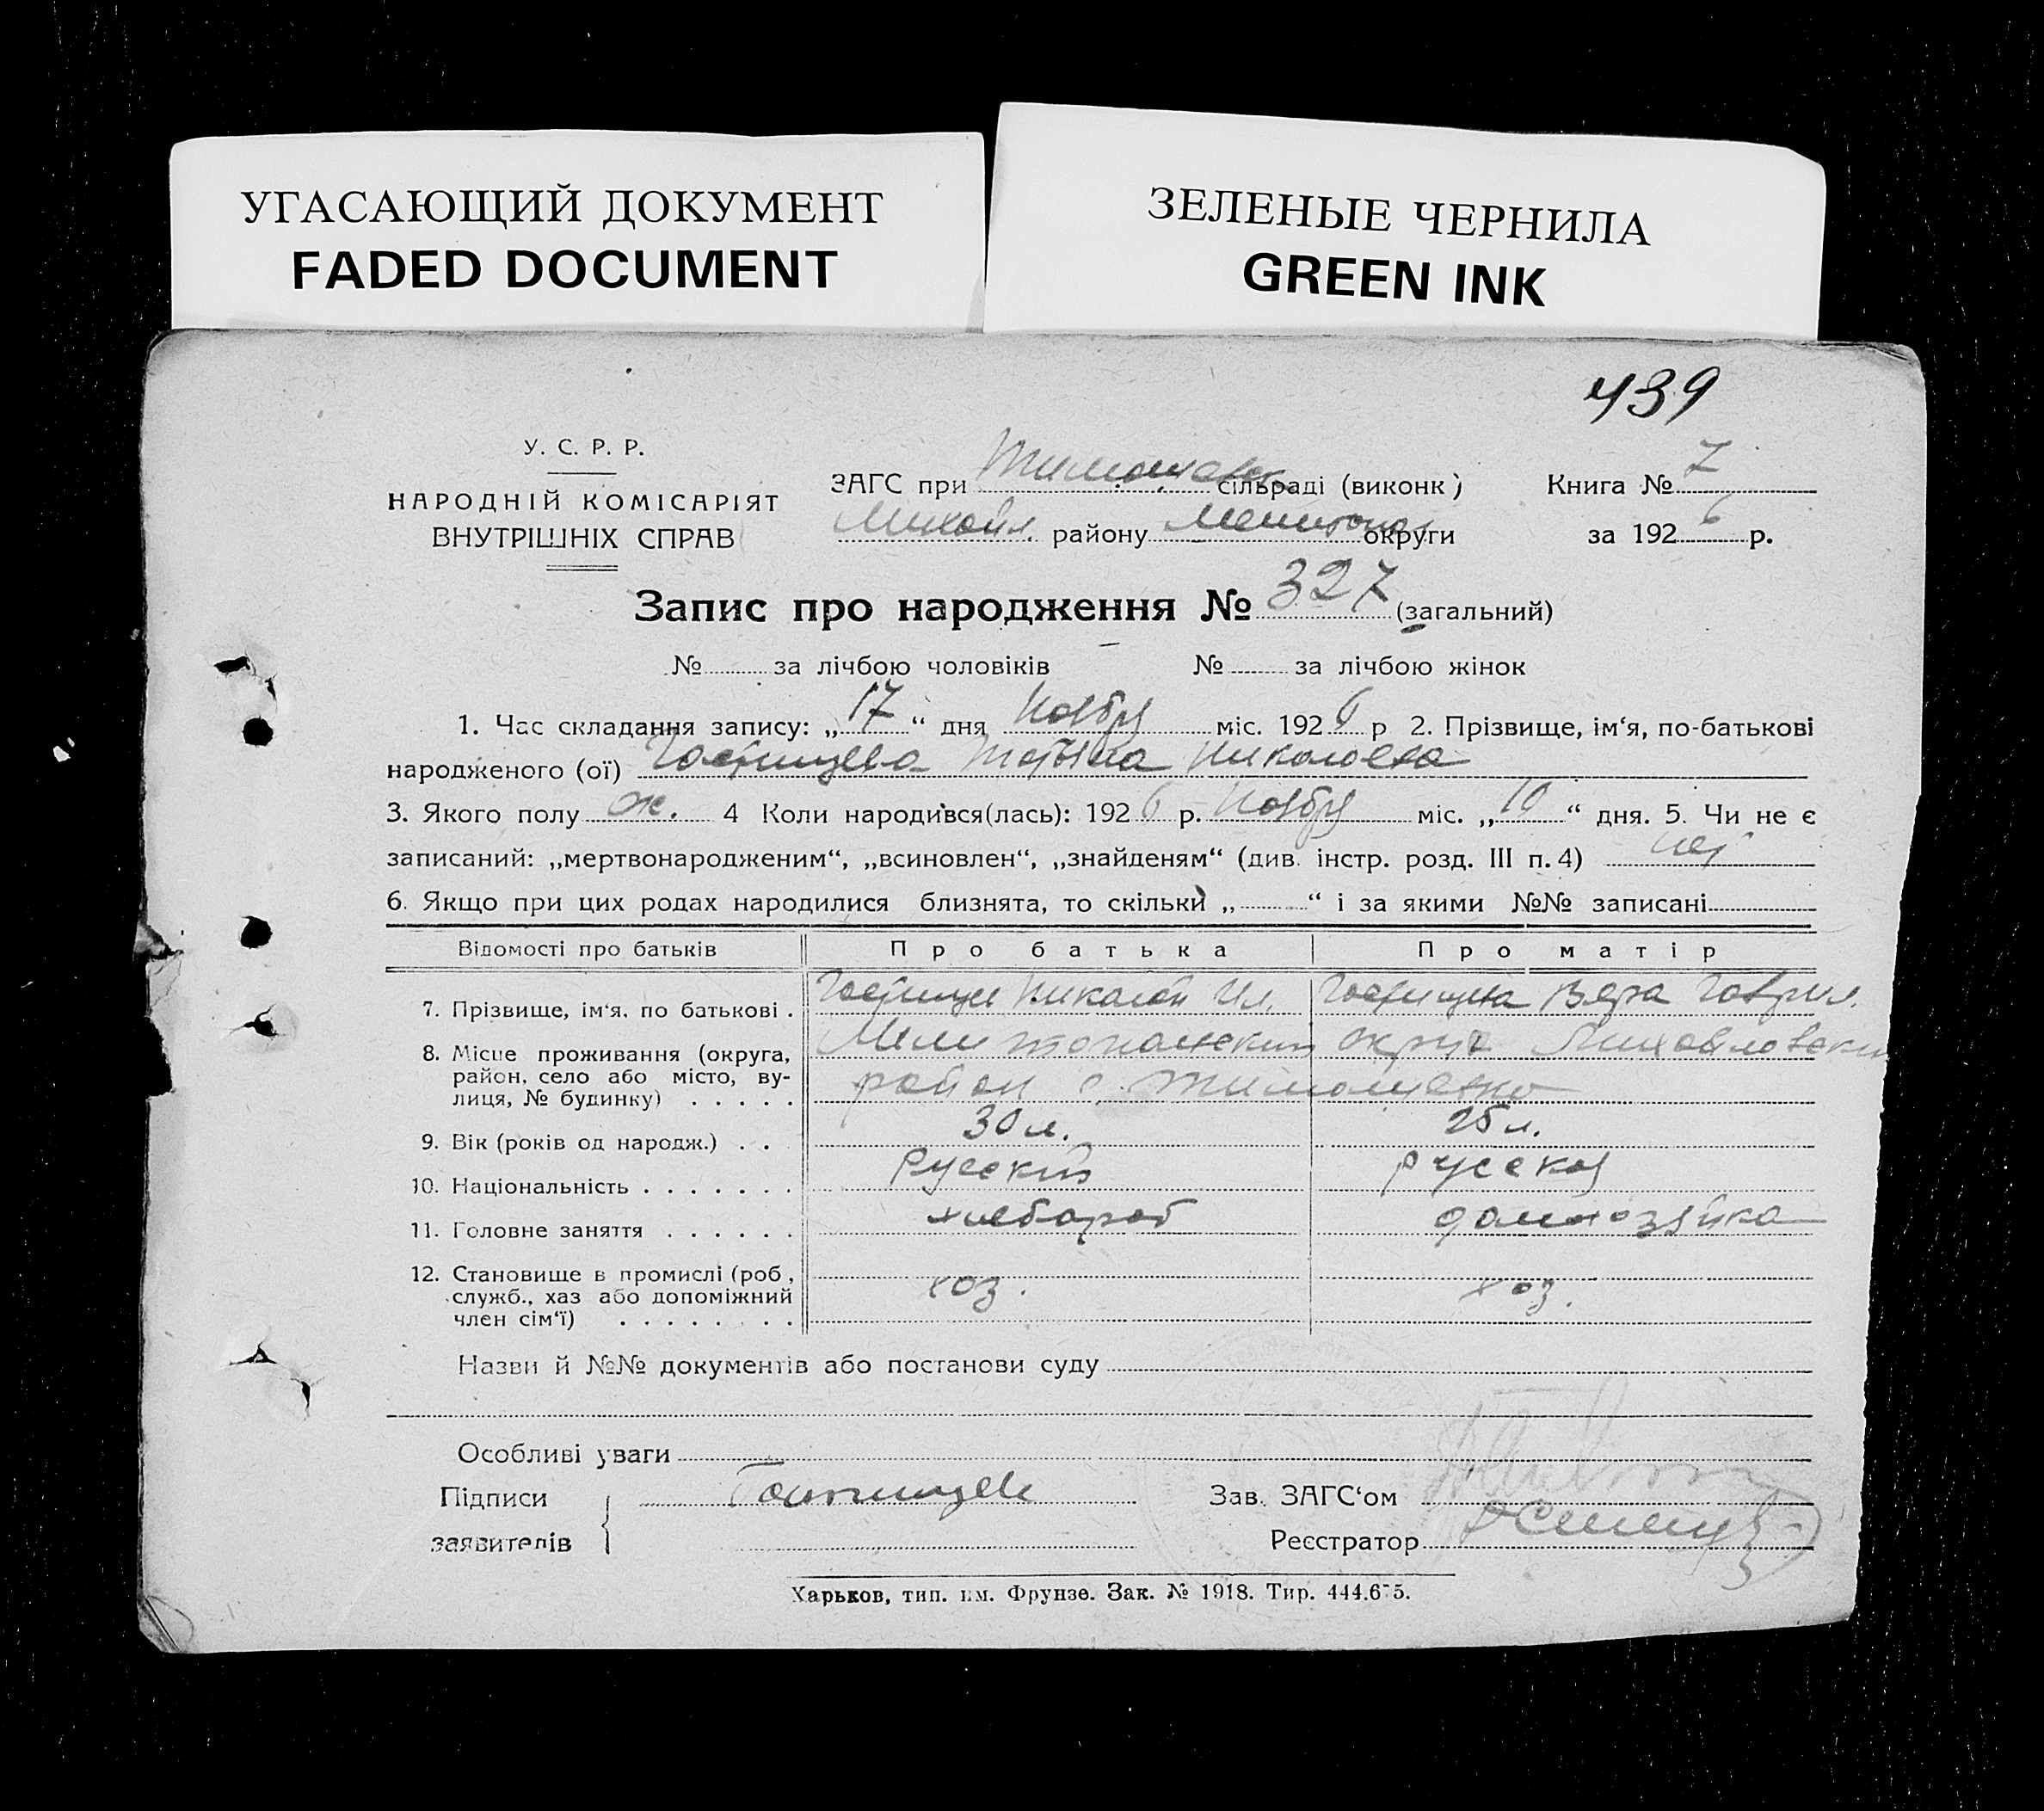 УГАСАЮЩИЙ ДОКУМЕНТ
FADED DOCUMENT
ЗЕЛЕНЫЕ ЧЕРНИЛА
GREEN INK
439
У. С. Р. Р.
НАРОДНІЙ КОМІСАРІЯТ
ВНУТРІШНІХ СПРАВ
ЗАГС при Тимошевск сільраді (виконк)
Михайл. району Мелитопол округи
Книга № 7
за 1926 р.
Запис про народження № 327 (загальний)
№ за лічбою чоловіків № за лічбою жінок
1. Час складання запису: „17“ дня Ноября міс. 1926 р 2. Прізвище, ім‘я, по-батькові
народженого (ої) Гостищева Татьяна Николаевна
3. Якого полу ж. 4 Коли народився(лась): 1926 р. Ноября міс. „10“ дня. 5. Чи не є
записаний: „мертвонародженим“, „всиновлен“, „знайденям“ (див. інстр. розд. III п. 4) нет
6. Якщо при цих родах народилися близнята, то скільки „ “ і за якими №№ записані
Відомості про батьків Про батька Про матір
7. Прізвище, ім‘я, по батькові . Гостищев Николай Ил. Гостищева Вера Гаврил.
8. Місце проживання (округа, Мелитопольский округ Михайловский
район, село або місто, ву-
лиця, № будинку) . . . . . район с. Тимошевка
9. Вік (років од народж.) . . 30 л. 25 л.
10. Національність . . . . . . . Русский русская
11. Головне заняття . . . . . . хлебороб домохозяйка
12. Становище в промислі (роб,
служб., хаз або допоміжний хоз. хоз.
член сім‘ї) . . . . . . . .
Назви й №№ документів або постанови суду
Особливі уваги
Підписи Гостищев Зав. ЗАГС‘ом
заявителів Реєстратор
Харьков, тип. им. Фрунзе. Зак. № 1918. Тир. 444.675.